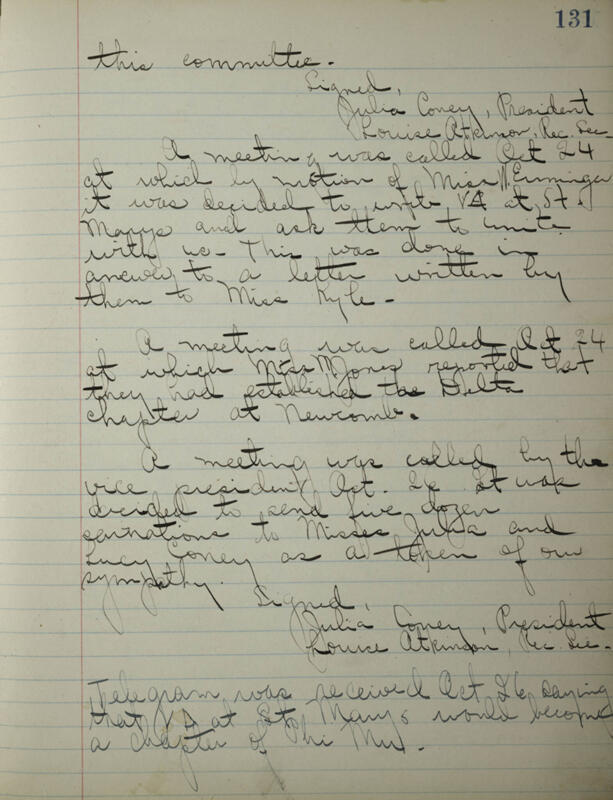 131
this committee.
Signed,
Julia Coney, President
Louise Atkinson, Rec. Sec.
A meeting was called Oct 24
at which by motion of Miss
it was decided to write at St.
Marys and ask them to unite
with us - This was done in
answer to a letter written by
them to Miss Kyle -
A meeting was called Oct 24
at which Miss M Jones reported that
they had established the Delta
chapter at Newcomb.
A meeting was called by the
vice president Oct. 26 It was
decided to send five dozen
carnations to Misses Julia and
Lucy Coney as a token of our
sympathy.
Signed,
Julia Coney, President
Louise Atkinson, Rec. Sec -
Telegram was received Oct 26 saying
that at St Marys would become
a chapter of Phi Mu.